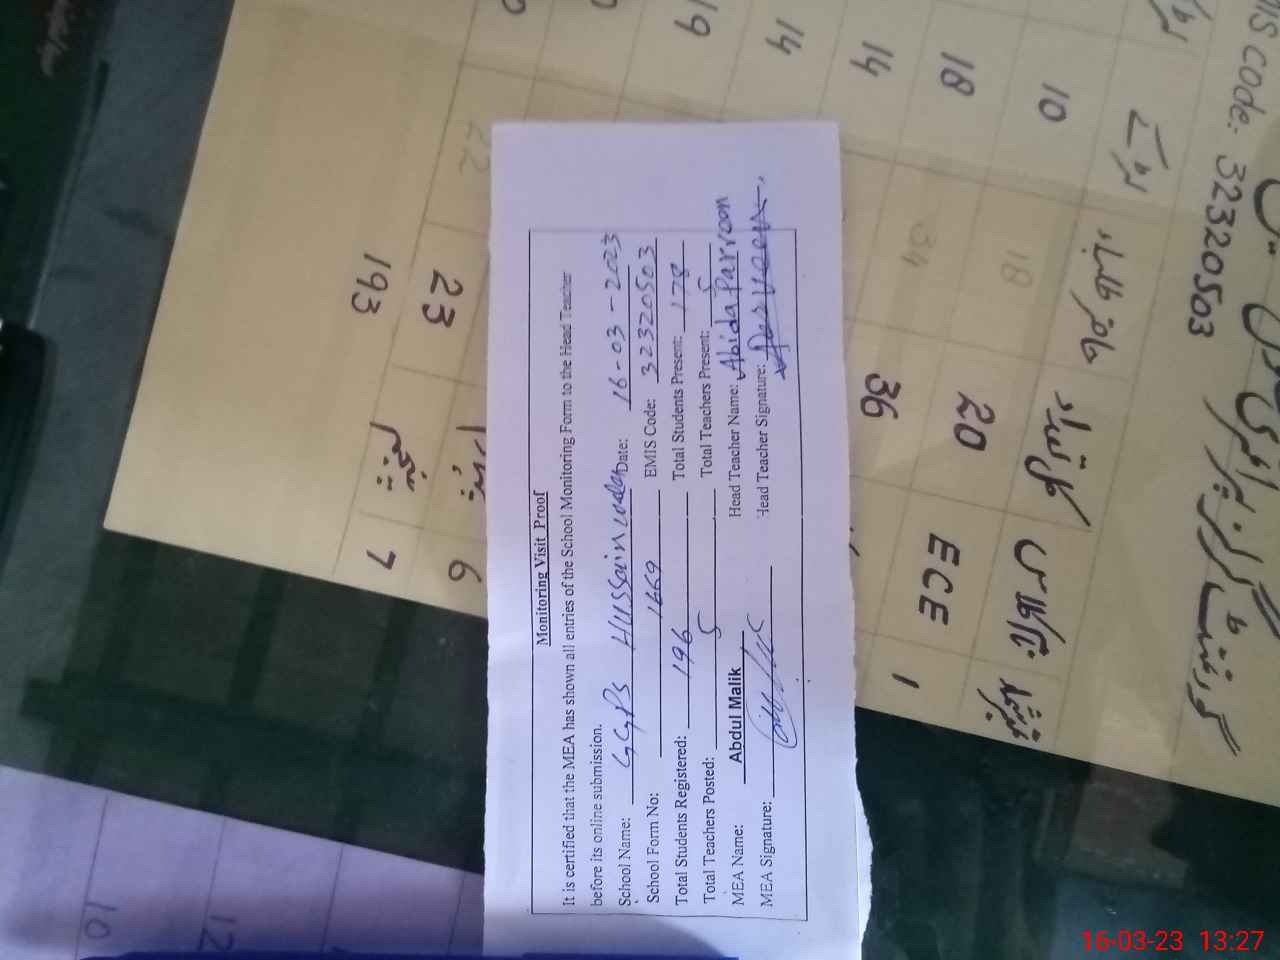 Monitoring Visit Proof
It is certified that the MEA has shown all entries of the School Monitoring Form to the Head Teacher
before its online submission.
School Name: GGPS Hussain Date: 16-03-2023
School Form No: 1669 EMIS Code: 32320503
Total Students Registered: 196 Total Students Present: 178
Total Teachers Posted: 5 Total Teachers Present: 5
MEA Name: Abdul Malik Head Teacher Name: Abida Parveen
MEA Signature: Head Teacher Signature: Perveen
CODE: 32320503
نمبر شمار نام کلاس کل تعداد حاضر طلباء
1 ECE 20 18 10
36 34 18
14
14
19
6 23 22
7 193
10
12
16-03-23 13:27